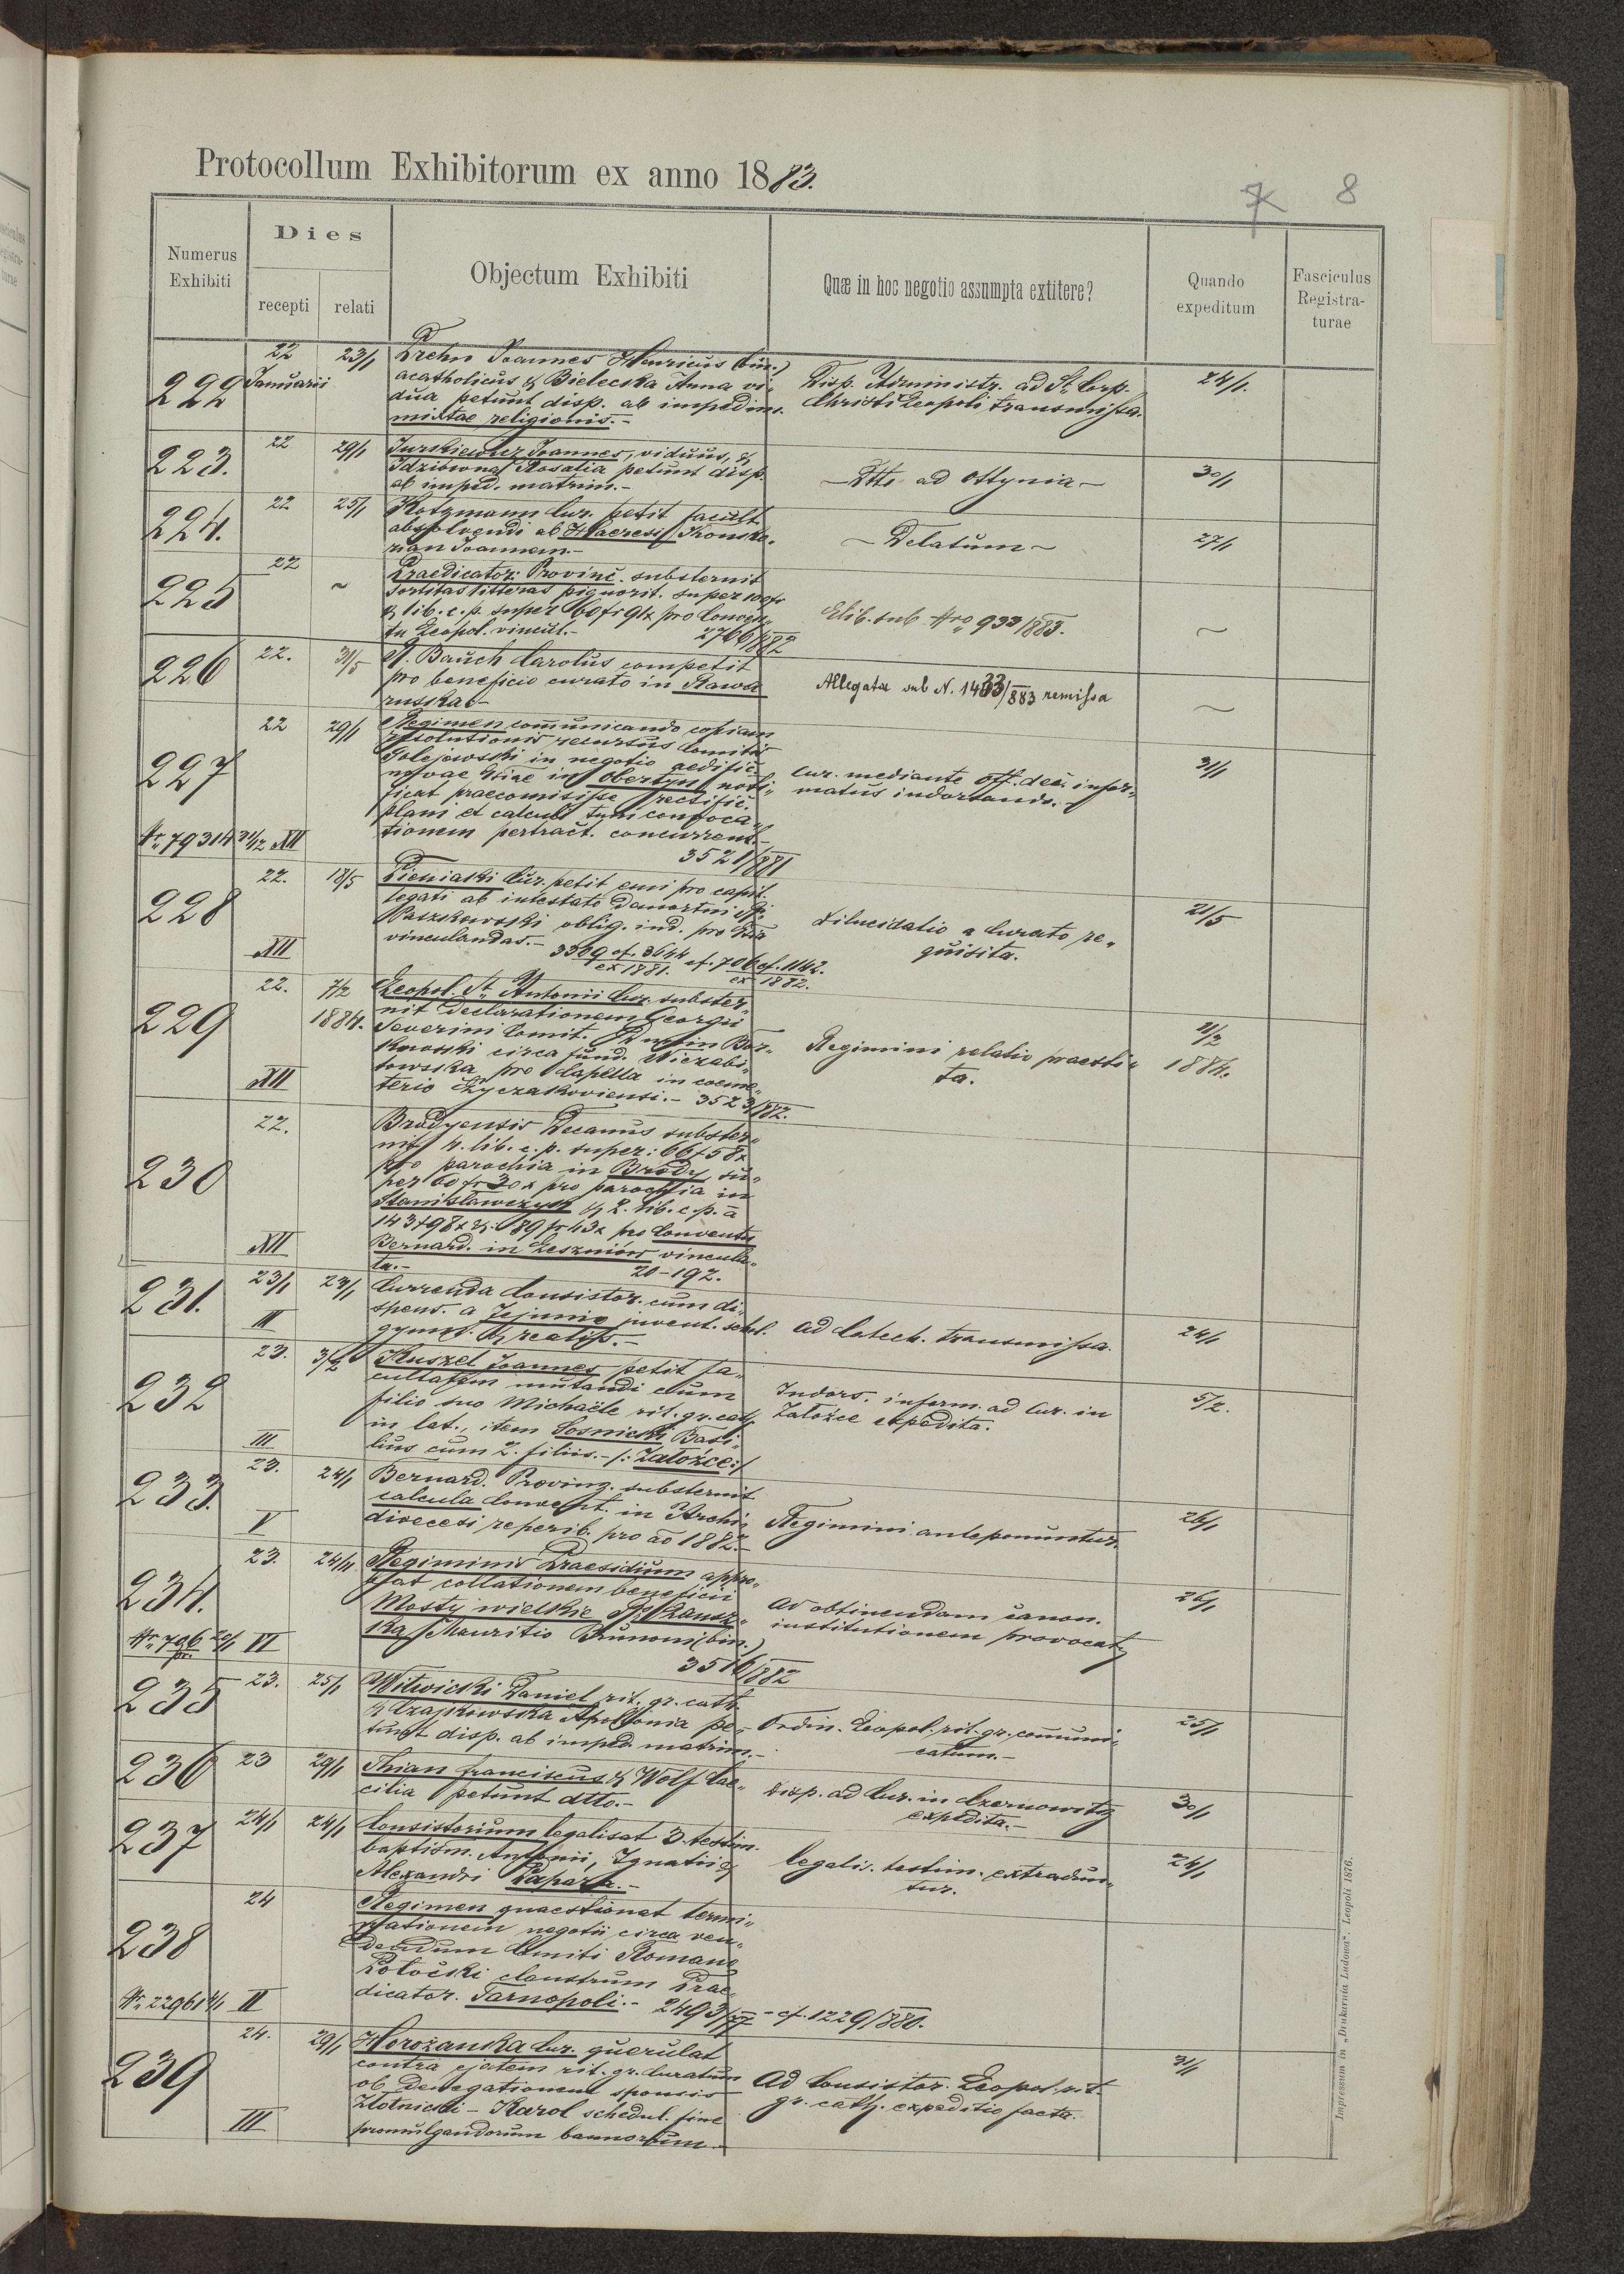 Protocollum Exhibitorum ex anno 1883.
7 8
Numerus Exhibiti
Dies
recepti relati
Objectum Exhibiti
Quæ in hoc negotio assumpta extitere?
Quando expeditum
Fasciculus Registra-turae
222 22 Januarii 23/1
Joannes Henricus (bin.)
acatholicus & Bielecska Anna vi-
dua petunt disp. ab impedim.
mixtae religionis.-
Disp. Administr. ad St. Corp.
Christi Leopoli transmissa.
24/1.
223. 22 29/1
Jurkiewicz Joannes, viduus, &
Rosalia petunt disp.
ab imped. matrim.-
- Dtto ad Ottynia -
30/1
224. 22 25/1
Kotzmann Cur. petit facult.
absolvendi ab Haeresi
Joannem.-
- Delatum -
27/1
225 22 ~
Praedicator: Provinc. substernit
sortitas litteras pignorit. super 100 fr
& lib. c. p. super 60 fr 91x pro Conven-
tu Leopol. vincul.-
2766/882
Elib. sub Nro 933/883.
~
226 22. 31/5
Bauch Carolus competit
pro beneficio curato in Rawa
ruska.-
Allegata sub N. 1433/883 remissa
~
227 22 29/1
Regimen communicando copiam
resolutionis recursus Comitis
Golejewski in negotio aedific.
novae Eccliae in Obertyn noti-
ficat praecomisisse rectific.
plani et calculi tum convoca-
tionem pertract. concurrent.-
3521/881
Nr. 79314 31/12 XII
Cur. mediante off. dec. infor-
matus indorsando.
31/1
228 22. 18/5
Pieniaski Cur. petit emi pro capit.
legati ab intestato
Paszkowski oblig. ind. pro Ecclia
vinculandas.- 3589 cf. 3644 cf. 706 cf. 1142.
ex 1881. ex 1882.
XII
Dilucidatio a Curato re-
quisita.
21/5
229 22. 7/2 1884.
Leopol. St. Antonii Cur. subster-
nit declarationem Georgii
Severini Comit. Dunin Bor-
kowski circa fund. Wiezabi-
towska pro Capella in coeme-
terio Łyczakoviensi.- 3523/882.
XII
Regimini relatio praesti-
ta.
11/2
1884.
230 22.
Brodyensis Decanus subster-
nit 4. lib. c. p. super: 66 f 58x
pro parochia in Brody, su-
per 60 fr 30x pro parochia in
Stanisławczyk & 2. lib. c. p. à
143 f 98x & 89 fr 43x pro Conventu
Bernard. in Leszniów vincula-
ta.-
20-192.
XII
231. 23/1 23/1
Currenda Consistor. cum di-
spens. a Jejunio juvent. schol.
gymn. & realiss.-
III
Ad Catech. transmissa.
24/1
232 23. 3/2
Kuszel Joannes petit fa-
cultatem mutandi cum
filio suo Michaële rit. gr. cath.
in lat., item Sosnicski Basi-
lius cum 2. filiis.- /: Załoźce:/
III
Indors. inform. ad Cur. in
Załoźce expedita.
5/2.
233. 23. 24/1
Bernard. Proving. substernit
calcula Convent. in Archi-
dioecesi reperib. pro ao 1882.-
V
Regimini anteponuntur.
26/1
234. 23. 24/1
Regiminis Praesidium appro-
bat collationem beneficii
Mosty wielkie
Mauritio Brunoni (bin.)
3516/882
Nr. 796 20/1 VI
pr.
Ad obtinendam canon.
institutionem provocat.
26/1
235 23. 25/1
Witwicki Daniel rit. gr. cath.
& Czajkowska Apollonia pe-
tunt disp. ab imped. matrim.-
Ordin. Leopol. rit. gr. communi-
catum.-
25/1
236 23 29/1
Thian Franciscus & Wolf Cae-
cilia petunt dtto.-
Disp. ad Cur. in Czernowitz
expedita.-
30/1
237 24/1 24/1
Consistorium legalisat 3 testim.
baptism. Antonii, Ignatii &
Alexandri Papara.-
Legalis. testim. extradun-
tur.
24/1
238 24
Regimen quaestionat termi-
nationem negotii circa ven-
dendum Comiti Romano
Potocki claustrum Prae-
dicator. Tarnopoli.- 2493/77 - cf. 1229/880.
Nr. 2296 II
239 24. 29/1
Horożanka Cur. querulat
contra ejatem rit. gr. Curatum
ob denegationem sponsis
Złotnicki - Karol schedul. fine
promulgandorum bannorum.
III
Ad Consistor. Leopol. rit.
gr. cath. expeditio facta.
31/1
Impressum in „Drukarnia Ludowa“. Leopoli 1876.